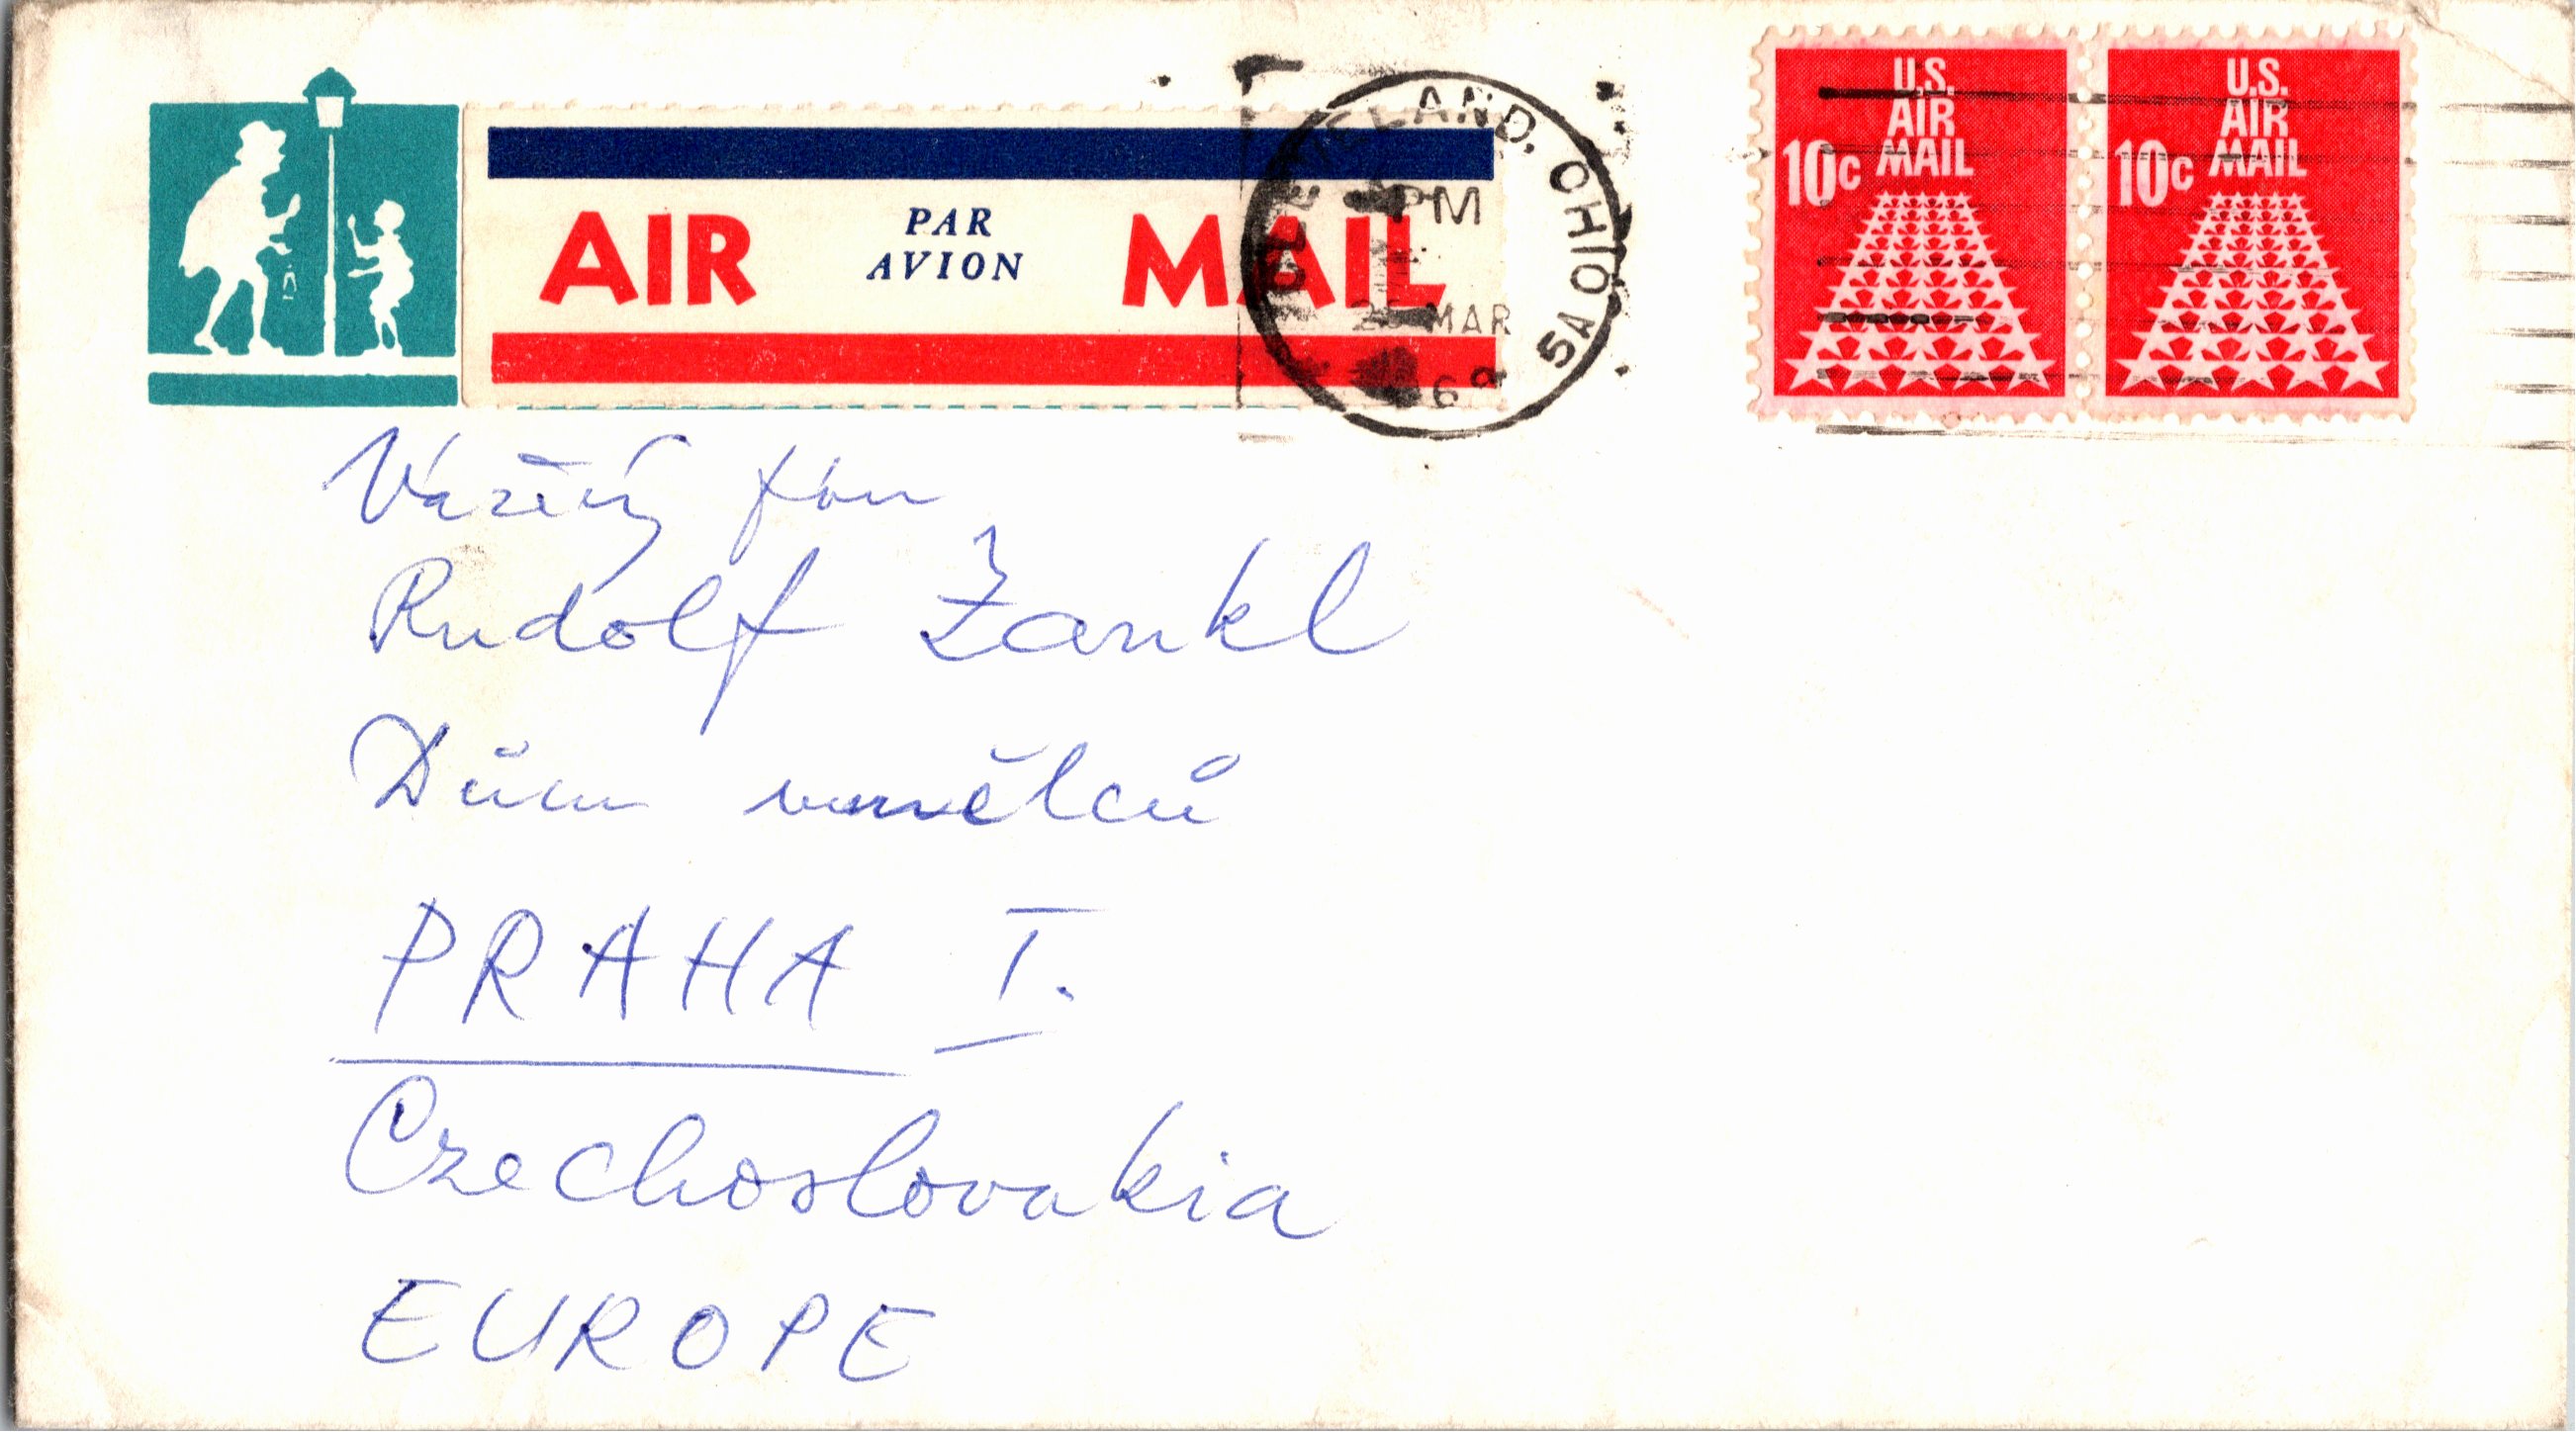 U.S. AIR MAIL 10c
U.S. AIR MAIL 10c
AIR PAR AVION MAIL
CLEVELAND, OHIO 5A
PM
MAR
Vážený pan
Rudolf Žankl
Dům umělců
PRAHA I.
Czechoslovakia
EUROPE